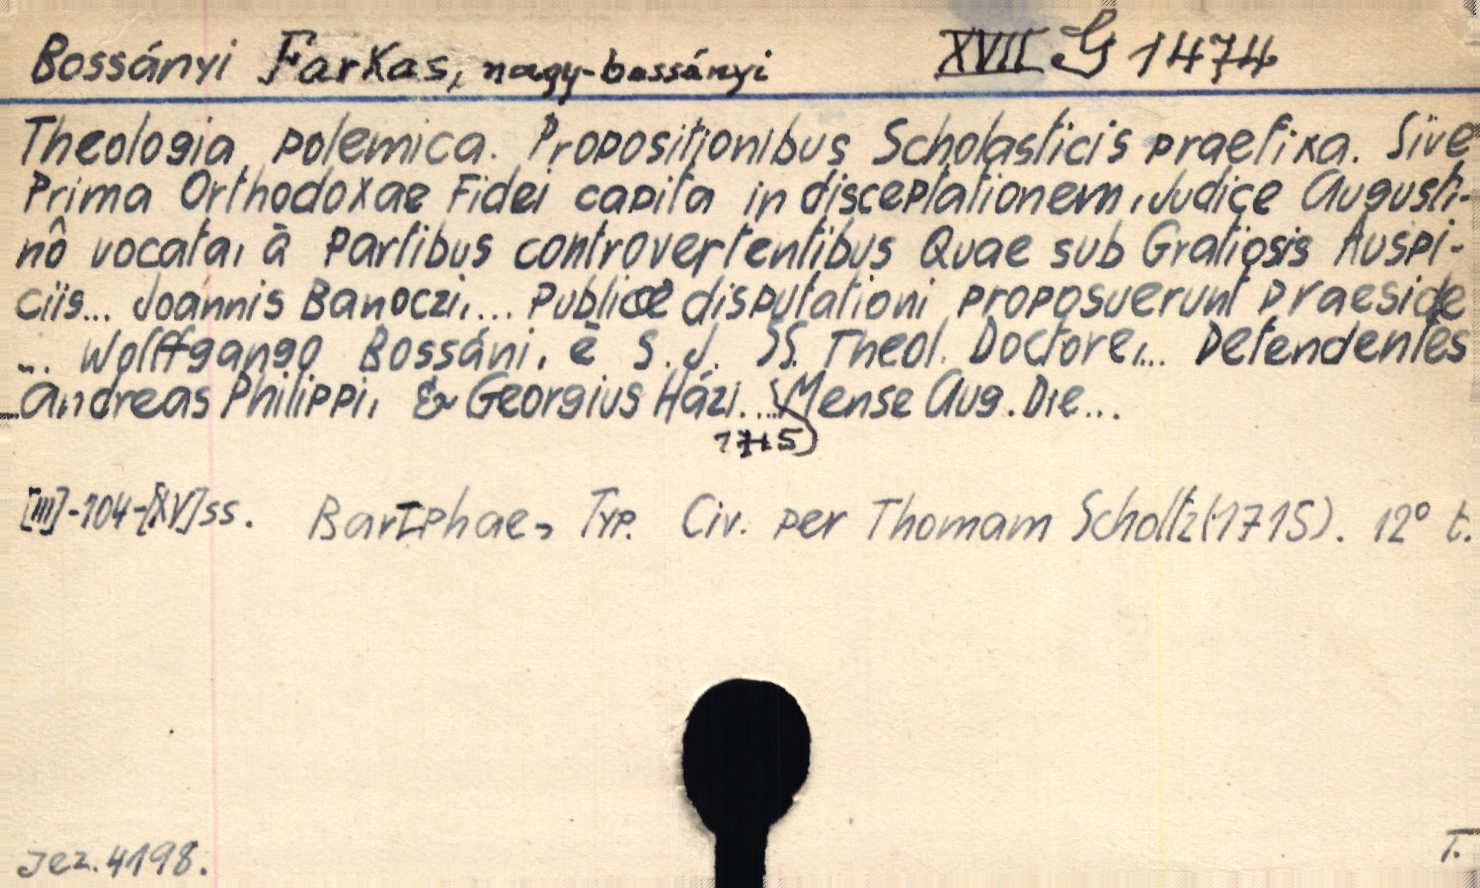 Bossányi Farkas, nagy-bossányi XVII G 1474
Theologia polemica. Propositionibus Scholasticis praefixa. Sive
Prima Orthodoxae Fidei capita in disceptationem, Judice Augusti-
nô vocata, à Partibus controvertentibus Quae sub Gratiosis Auspi-
ciis... Joannis Banoczi,... Publicae disputationi proposuerunt Praeside
... Wolffgango Bossáni, è S. J. SS. Theol. Doctore,... Defendentes
Andreas Philippi, & Georgius Házi... Mense Aug. Die...
1715)
[III]-104-[XV]ss. Bartphae, Typ. Civ. per Thomam Scholtz (1715). 12° t.
Jez. 4198. T.